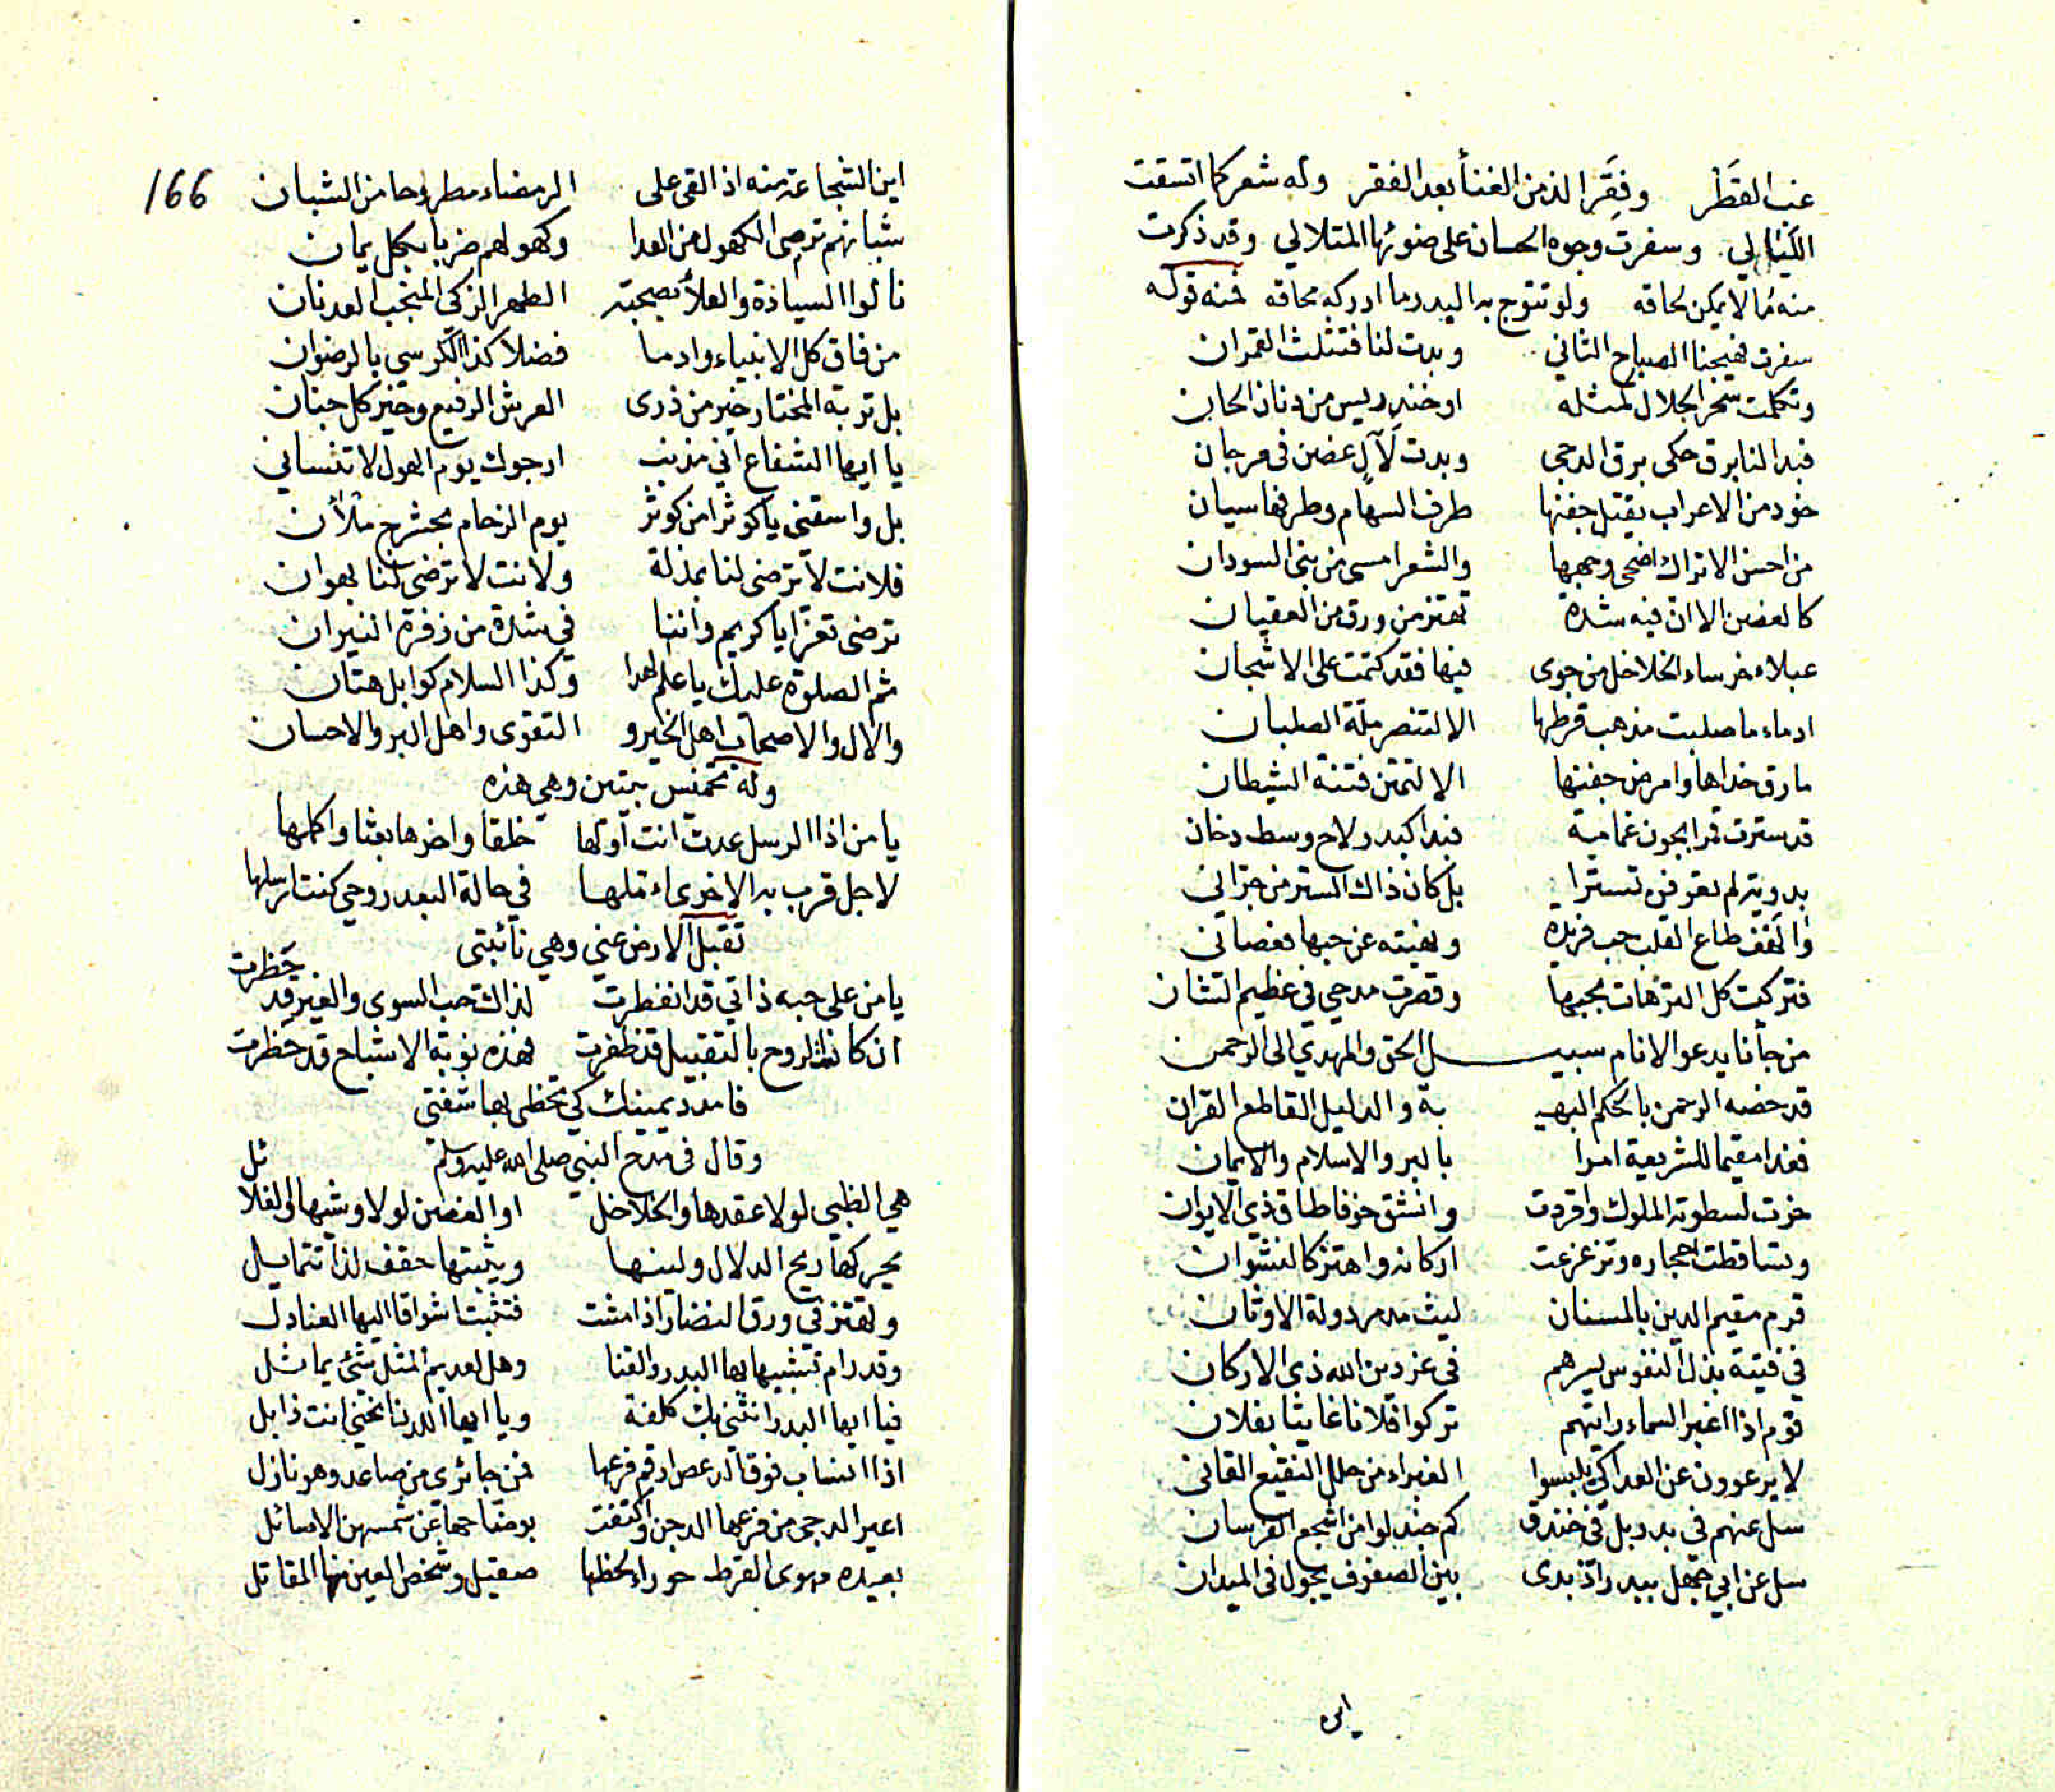 غب القَطَر وفِقَر الذ من الغنأ بعد الفقر وله شعر كما اتسقت
الليالي وسفرت وجوه الحسان على ضوئها المتلالي وقد ذكرت
منه ما لا يمكن لحاقه ولو تتوج به البدر ما ادركه محاقه فمنه قوله
سفرت فهيجنا الصباح الثاني وبدت لنا فتثلث القمران
وتكلمت سحر الجلال لمثله او خندريس من دنان الحان
فبدا لنا برق حكى برق الدجى وبدت لآلٍ غضن في مرجان
خود من الاعراب يقتل جفنها طرف السهام وطرفها سيان
من احسن الاتراك اضحى وجهها والشعر امسى من بني السودان
كالغصن الا ان فيه شدة تهتز من ورق من العقيان
عبلاء خرساء الخلاخل من جوى فيها فقد كتمت على الاشجان
ادماء ما صلبت مذهب قرطها الا لتنصر ملة الصلبان
ما رق خداها وامرض جفنها الا لتمتن فتنة الشيطان
قد سترت قمرا بجون غمامة فبدا كبدر لاح وسط دخان
بدوية لم تعرفن تسترا بل كان ذاك الستر من جزاني
واَلَفَفْ طاع القلب حب فريدة ونهيته عن حبها فعصاني
فتركت كل الترهات بحبها وقصرت مدحي في عظيم الشان
من جأنا يدعو الانام سبيـــل الحق والمهدي الى الرحمن
قد خصه الرحمن بالحكم البهيـ ـة والدليل القاطع القران
فغدا مقيما للشريعة امرا بالبر والاسلام والايمان
خرت لسطوته الملوك واقردت وانشق خوفا طاق ذي الايوان
وتساقطت احجاره وتزعزعت اركانه واهتز كالنشوان
قرم مقيم الدين بالمسنان ليث مدمر دولة الاوثان
في فتية بذل النفوس يسرهم في عز دين الله ذي الاركان
قوم اذا اغبر السماء رايتهم تركوا فلانا غايثا بفلان
لا يرعوون عن العدا كي يلبسوا الغبراء من حلل النقيع القاني
سل عنهم في بدر بل في خندق كم جندلوا من اشجع الفرسان
سل عن ابي جهل ببدر اذ بدى بين الصفوف يجول في الميدان
اين
166
اين الشجاعة منه اذ القى على الرمضاء مطروحا من الشبان
شبانهم ترضى الكهول من العدا وكهولهم ضربا بكل يمان
نالوا السيادة والعلأ بصحبة الطهر الزكي المنتخب العدنان
من فاق كل الانبياء وادما فضلا كذا الكرسي بالرضوان
بل تربة المختار خير من ذرى العرش الرفيع وخير كل جنان
يا ايها الشفاع اني مذنب ارجوك يوم الهول لا تنساني
بل واسقني يا كوثرا من كوثر يوم الزحام بحشرج ملأن
فلانت لا ترضى لنا بمذلة ولانت لا ترضى لنا بهوان
ترضى تعزا يا كريم واننا في شدة من زفرة النيران
ثم الصلوة عليك يا علم الهدا وكذا السلام كوابل هتان
والال والاصحاب اهل الخير و التقوى واهل البر والاحسان
وله تخميس بيتين وهي هذه
يا من اذا الرسل عدت انت اولها خلقا واخرها بعثا واكملها
لاجل قرب به الاخرى املها في حالة البعد روحي كنت ارسلها
تقبل الارض عني وهي نائبتي
يا من على حبه ذاتي قد انفطرت لذاك حب السوى والغير قد حَظرت
ان كانت الروح بالتقبيل قد ظفرت فهذه نوبة الاشباح قد حَظرت
فامدد يمينك كي تحظى بها شفتي
وقال في مدح النبي صلى الله عليه وسلم
هي الظبي لولا عقدها والخلاخل او الغصن لولا وشيها والغلائل
يحركها ريح الدلال ولينها ويثبتها حقف لذا تتمايل
وتهتز في ورق النضار اذا مشت فتثبت اشواقا اليها العنادل
وقد رام تشبيها بها البدر والقنا وهل لعديم المثل شئ يماثل
فيا ايها البدر انثنى بك كلفة ويا ايها اللدن انحني انت ذابل
اذا انساب فوق الدعص ارقم فرعها فمن جا ئرى من صاعد وهو نازل
اعير الدجى من فرعها الدجن واكتفت بوضاحها عن شمسهن الاصائل
بعيدة مهوى القرط حوراء لحظها صقيل وشخص العين منها المقاتل